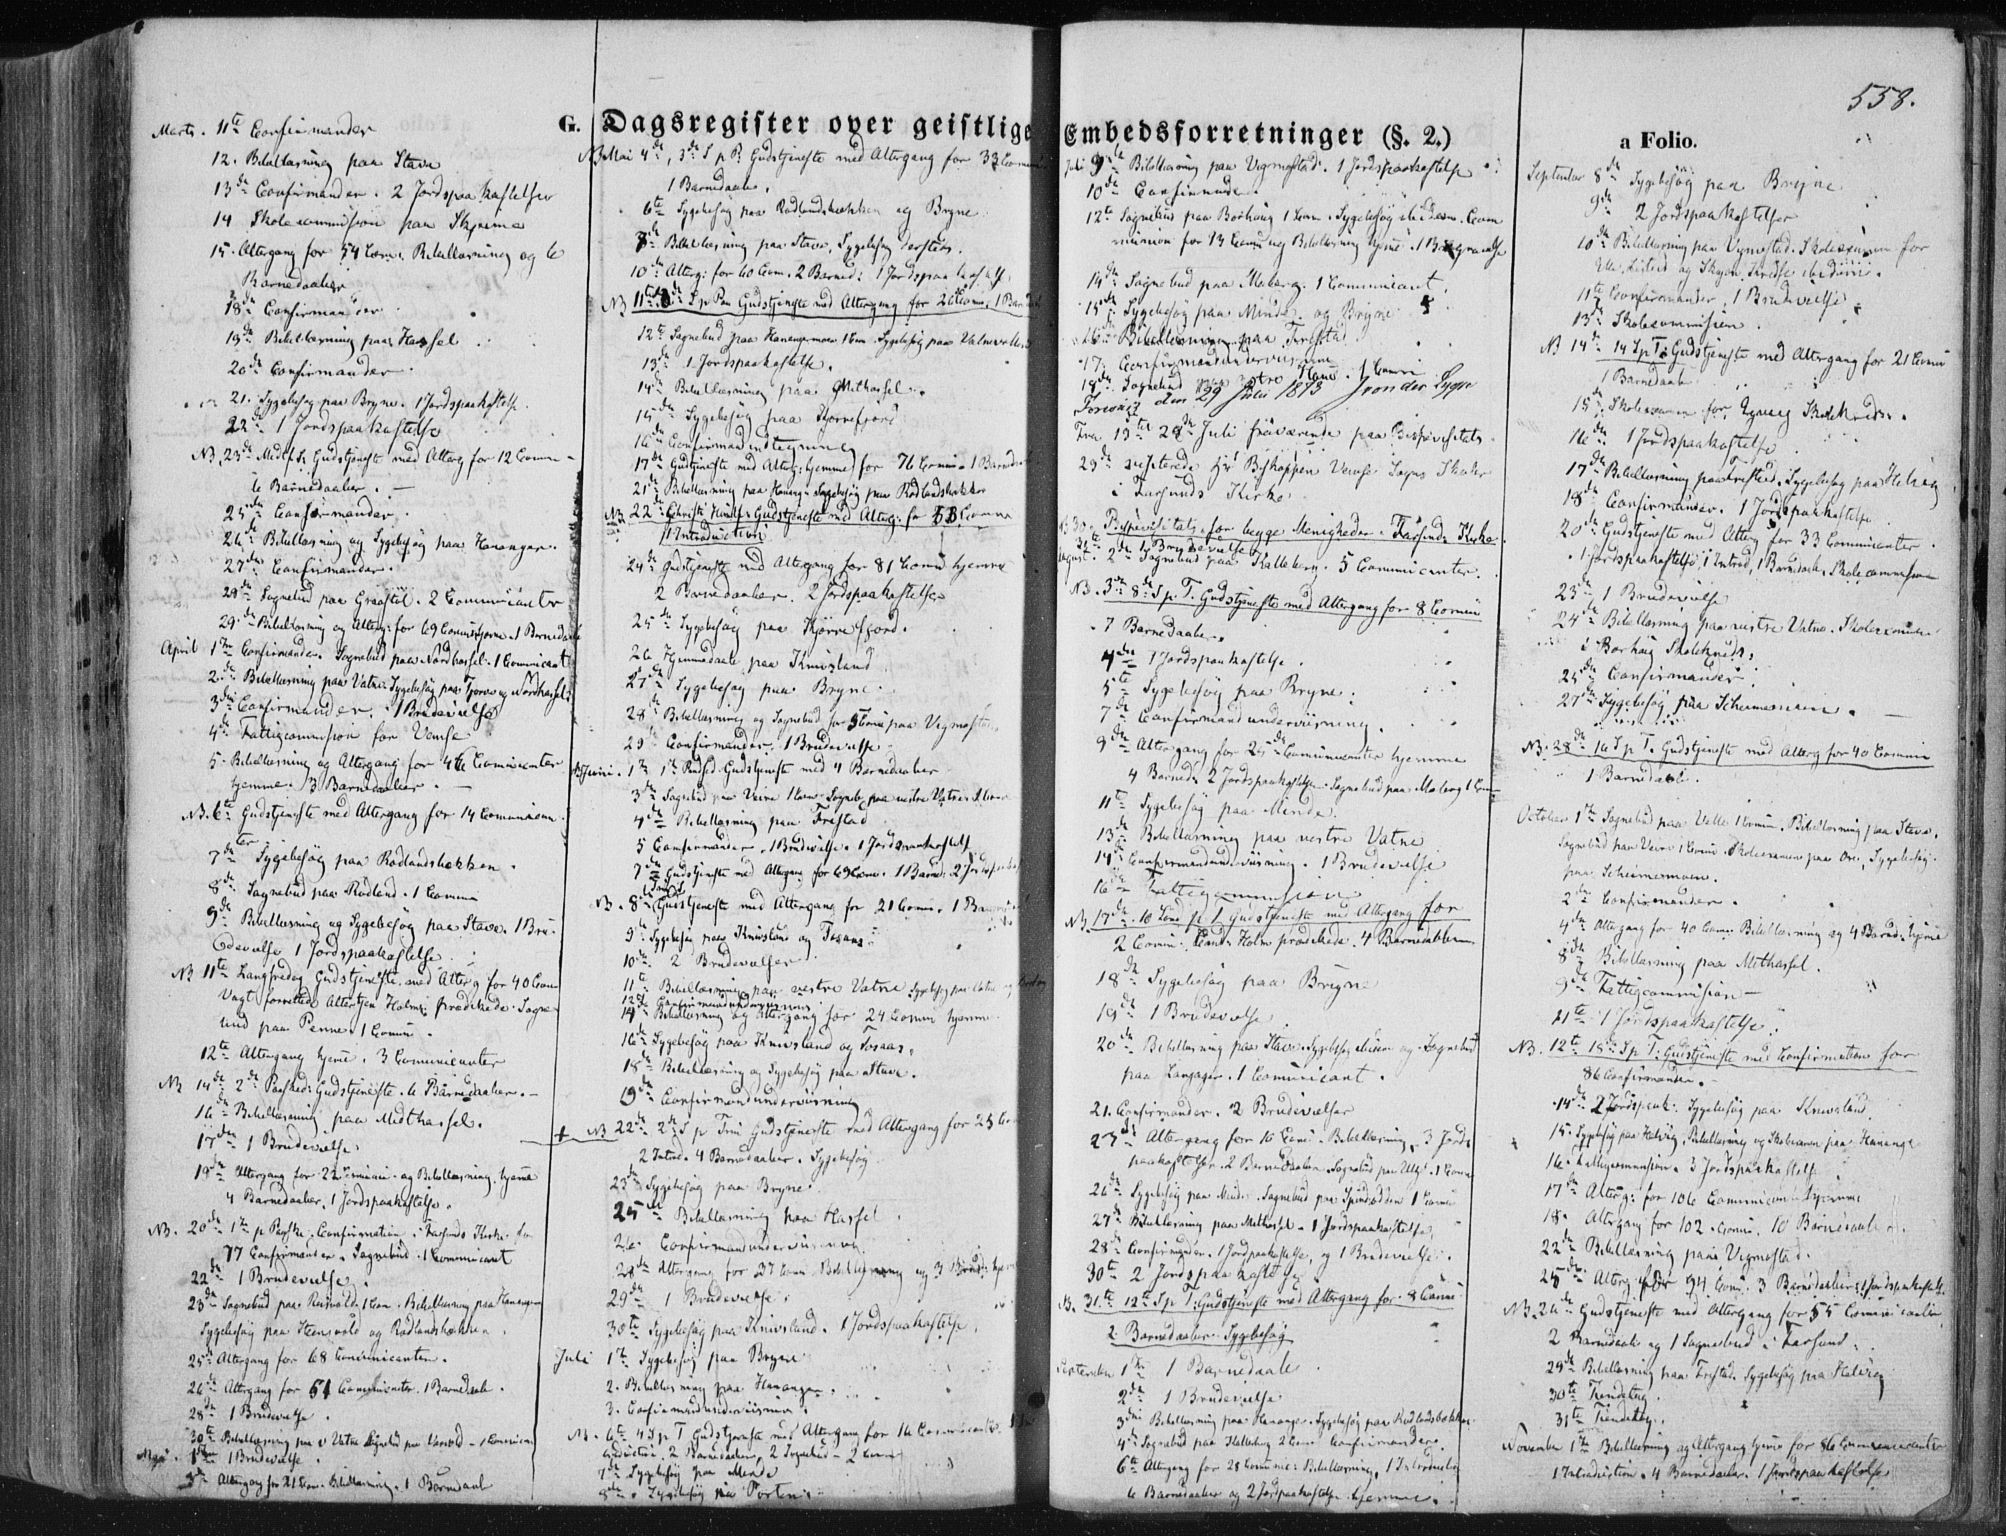 558.
G. Dagsregister over geistlige Embedsforretninger (§. 2.)
a Folio.
Marts. 11te Confirmander
12. Bibellæsning paa Stave
13de Confirmander. 2 Jordspaakastelser
14 Skolecommission paa Skjeime
15. Altergang for 54 Com. Bibellæsning og 6
Barnedaaber
18de Confirmander
19de Bibellæsning paa Hassel
20de Confirmander
21. Sygebesøg paa Bryne. 1 Jordspaakastelse
22de 1 Jordspaakastelse
NB 23de Gudstjeneste med Alterg for 12 Comm
6 Barnedaaber.
25de Confirmander.
26de Bibellæsning og Sygebesøg paa Hananger.
27de Confirmander.
28de Sognebud paa 2 Communicanter
29de Bibellæsning og Alterg: for 69 1 Barnedaab
April 1te Confirmander. Sognebud paa Nordhassel. 1 Comunicant
2de Bibellæsning paa Vatne. Sygebesøg paa og Nordhassel
3die Confirmander. 1 Brudevielse
4de Fattigcommission for Vanse
5. Bibellæsning og Altergang for 46 Communicanter
hjemme. 3 Barnedaaber.
NB. 6te Gudstjeneste med Altergang for 14 Comunican
ter
7de Sygebesøg paa Rødlandsbakken.
8de Sognebud paa Rødland. 1 Comm
9de Bibellæsning og Sygebesøg paa Stave. 1 Bru
devielse 1 Jordspaakastelse
NB 11te Langfredag Gudstjeneste med Alterg for 40 Com
Vagt forrettede Altertjen Holm prædikede. Sogne
bud paa Penne. 1 Comm.
12te Altergang hjeme. 3 Comunicanter
NB 14de 2de Paasked: Gudstjeneste. 6 Barnedaaber.
16de Bibellæsning paa Midthassel.
17de 1 Brudevielse
19de Altergang for 22 og Bibellæsning hjeme
4 Barnedaaber. 1 Jordspaakastelse.
NB. 20de 1te p Paaske. Confirmation i Farsunds Kirke for
77 Confirmander. Sognebud. 1 Communicant
22de 1 Brudevielse.
23de Sognebud paa 1 Com. Bibellæsning paa Hananger
Sygebesøg paa og Rødlandsbakken.
25de Altergang for 68 Comunicanter.
26de Altergang for 51 Communicanter. 1 Barnedaab.
28de 1 Brudevielse.
30te Bibellæsning paa v Vatne Sognebud paa 1 Communicant
Mai. 1ste 1 Brudevielse.
3de Altergang for 21 Com. Bibellæsning. 1 Barnedaab
NB Mai 4de, 3de S p P. Gudstjeneste med Altergang for 33 Comm
1 Barnedaab.
6te Sygebesøg paa Rødlandsbakken og Bryne
8de Bibellæsning paa Stave, Sygebesøg
10de Alterg: for 60 Com. 2 Barned: 1 Jordspaakastelse
NB 11te S p P Gudstjeneste med Altergang for 26 Comm. 1 Barnedaab
12te Sognebud paa Hanangermoen 1 Com. Sygebesøg paa
13de 1 Jordspaakastelse.
14de Bibellæsning paa Midthassel.
15de Sygebesøg paa Kjørrefjord
16de Confirmandindtegning
17de Gudstjeneste med Alterg: hjemme for 76 Comm. 1 Barnedaab
21de Bibellæsning paa Hanang. Sygebesøg paa Rødlandsbakken
NB. 22de Christi Himlf: Gudstjeneste med Alterg: for 53 Comm
1 Introduction
24de Gudstjeneste med Altergang for 81 Comm hjemme
2 Barnedaaber. 2 Jordspaakastelser
25de Sygebesøg paa Kjørrefjord.
26 Hjemmedaab paa Knivsland
27de Sygebesøg paa Bryne.
28de Bibellæsning og Sognebud for 5 Comm paa Vigmostad
29de Confirmander. 1 Brudevielse
Juni. 1te 1te Pindsed. Gudstjeneste med 4 Barnedaaber
3de Sognebud paa Veire 1 Com. Sogneb. paa vestre Vatne
4de Bibellæsning paa Frestad
5 Confirmander. 1 Brudevielse. 1 Jordspaakastelse
7de Gudstjeneste med Altergang for 69 Com. 1 Barned: 2 Jordspaak
NB. 8de Gudstjeneste med Altergang for 21 Comm. 1 Barnedaab
9de Sygebesøg paa Knivsland og Tosaas
10de 2 Brudevielser
11te Bibellæsning paa vestre Vatne
12te Confirmandunderviisning
14de Bibellæsning og Altergang for 24 Comm hjemme
16de Sygebesøg paa Knivsland og Tosaas.
18de Bibellæsning og Sygebesøg paa Stave.
19de Confirmandunderviisning
NB 22de 2de S p Trin Gudstjeneste med Altergang for 25 Com
2 Introd. 4 Barnedaaber. Sygebesøg
23de Sygebesøg paa Bryne.
25de Bibellæsning paa Hassel
26. Confirmandunderviisning
28de Altergang for 37 Com. Bibellæsning og 3 Barned: hjem
29de 1 Brudevielse.
30te Sygebesøg paa Knivsland. 1 Jordspaakastelse
Juli 1te Sygebesøg paa Bryne
2. Bibellæsning paa Hananger.
3. Confirmandunderviisning
NB. 6te 4 S p T Gudstjeneste med Altergang for 16 Communicanter 1 In
troduction. 2 Barnedaaber, 2 Sognebud – 2 Comm
7de Sygebesøg paa Minde
8de Sygebesøg paa Porten
Juli 9de Bibellæsning paa Vigmostad. 1 Jordspaakastelse
10de Confirmander.
12te Sognebud paa Borhaug 1 Com. Sygebesøg ibidem. Com
munion for 13 Comm og Bibellæsning hjeme. 1 Begravelse
14de Sognebud paa Maberg. 1 Communicant.
15de Sygebesøg paa Minde og Bryne
16de Bibellæsning paa Frestad
17. Confirmandunderviisning
18de Sognebud paa Østre Hauge. 1 Comm
Foreviist den 29 Juli 1873 J von der Lippe
Fra 19te – 28de Juli fraværende paa Bispevisitats
29de visiterede Hr Biskoppen Vanse Sogns Skoler
i Farsunds Kirke
NB 30te Bispevisitats for begge Menigheder i Farsunds Kirke
31te 1 Brudevielse
August. 2de Sognebud paa Kalleberg. 5 Communicanter.
NB. 3de 8de S p T. Gudstjeneste med Altergang for 8 Comm
7 Barnedaaber.
4de 1 Jordspaakastelse.
5te Sygebesøg paa Bryne.
7de Confirmandunderviisning.
9de Altergang for 25 Communicanter hjemme
4 Barned: 2 Jordspaakastelser. Sognebud paa Maberg 1 Com
11te Sygebesøg paa Minde
13de Bibellæsning paa vestre Vatne
14de Confirmandunderviisning. 1 Brudevielse
16de Fattigcommission
NB 17de 10 Sønd p T. Gudstjeneste med Altergang for
2 Comm: Cand: Holm prædikede. 4 Barnedaaber
18de Sygebesøg paa Bryne
19de 1 Brudevielse
20de Bibellæsning paa Stave. Sygebesøg ibidem og Sognebud
paa Langager. 1 Comunicant.
21. Confirmander. 2 Brudevielser
23de Altergang for 16 Com. Bibellæsning. 3 Jords
paakastelser. 2 Barnedaaber. Sognebud paa 1 Comm
26de Sygebesøg paa Minde. Sognebud paa Spindsodden 1 Comm
27de Bibellæsning paa Midthassel. 1 Jordspaakastelse.
28de Confirmander. 1 Jordspaakastelse og 1 Brudevielse.
30te 2 Jordspaakastelser
NB. 31te 12te S p T. Gudstjeneste med Altergang for 8 Comm
2 Barnedaaber. Sygebesøg
September 1te 1 Barnedaab
2de 1 Brudevielse
3die Bibellæsning paa Hananger. Sygebesøg paa Rødlandsbakken
4de Sognebud paa Kalleberg 2 Com. Confirmander.
6te Altergang for 28 Comm: Bibellæsning. 1 Introduction
6 Barnedaaber og 2 Jordspaakastelser hjemme.
September 8de Sygebesøg paa Bryne
9de 2 Jordspaakastelser
10de Bibellæsning paa Vigmostad. Skoleexamen for
Ulle, Listeid og Skogen Kredse ibidem.
11te Confirmander, 1 Brudevielse
13de Skolecommission.
NB 14de 14 S p T. Gudstjeneste med Altergang for 21 Comm
1 Barnedaab
15de Skoleexamen for Skolekreds.
16de 1 Jordspaakastelse
17de Bibellæsning paa Frestad. Sygebesøg paa Helvig
18de Confirmander. 1 Jordspaakastelse
20de Gudstjeneste med Alterg for 33 Communicanter
1 Jordspaakastelse, 1 Introd, 1 Barnedaab, Skolecommission
23de 1 Brudevielse
24de Bibellæsning paa vestre Vatne. Skoleexamen
i Borhaug Skolekreds.
25de Confirmander
27de Sygebesøg paa Schiernemoen.
NB. 28de 16 S p T. Gudstjeneste med Alterg for 40 Comm
1 Barnedaab.
October 1te Sognebud paa Velle 1 Comm. Bibellæsning paa Stave.
Sognebud paa Veire 1 Comm. Skoleexamen paa Ore, Sygebesøg
paa Schiernemoen.
2de Confirmander.
4de Altergang for 40 Com. Bibellæsning og 4 Barned: hjeme
8de Bibellæsning paa Midthassel.
9de Fattigcommission –
11te 1 Jordspaakastelse.
NB. 12te 18de S p T: Gudstjeneste med Confirmation for
86 Confirmander.
14de 2 Jordspaak: Sygebesøg paa Knivsland.
15. Sygebesøg paa Helvig, Bibellæsning og Skoleexamen paa Hanange
16. Fattigcommission. 3 Jordspaakastelser
17de Alterg: for 106 Communicanter hjemme
18. Altergang for 102 Comm. 10 Barnedaaber.
22de Bibellæsning paa Vigmostad.
25de Alterg for 94 Comm. 3 Barnedaaber. 1 Jordspaakastelse
NB. 26de Gudstjeneste med Altergang for 55 Communicanter,
2 Barnedaab og 1 Sognebud i Farsund.
29de Bibellæsning paa Frestad. Sygebesøg paa Helvig
30te Tiendeting.
31te Tiendeting.
November 1te Bibellæsning og Altergang hjeme for 86 Communicanter
1 Introduction. 4 Barnedaaber. 1 Jordspaakastelse